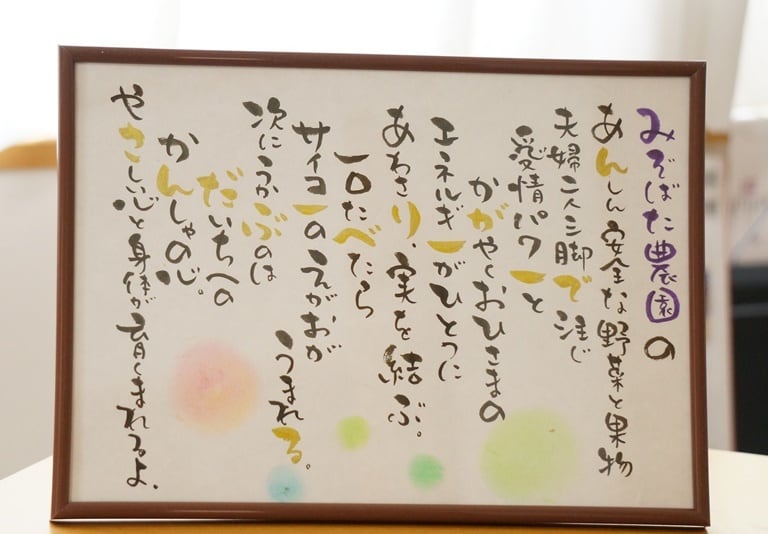 みぞばた農園の
あんしん安全な野菜と果物
夫婦二人三脚で注ぐ
愛情パワーと
かがやくおひさまの
エネルギーがひとつに
あわさり、実を結ぶ。
一口たべたら
サイコーのえがおが
うまれる。
次にうかぶのは
だいちへの
かんしゃの心。
やさしい心と身体が育くまれるよ、